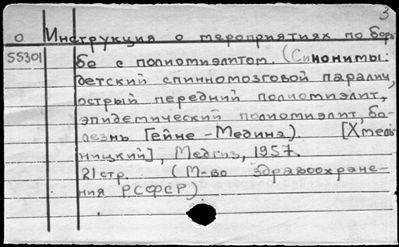 3
О Инструкция о мероприятиях по борь
55301 бе с полиомиэлитом. (Синонимы:
детский спинномозговой паралич,
острый передний полиомиэлит,
эпидемический полиомиэлит, бо-
лезнь Гейне-Медина). [Хмель-
ницкий], Медгиз, 1957.
21 стр. (М-во здравоохране-
ния РСФСР)